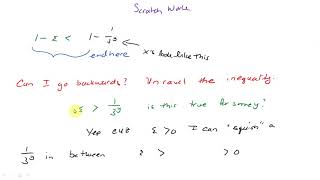 Scratch Work
1 - ε < 1 - 1/3^j
end here
x's look like this
Can I go backwards? Unravel the inequality.
ε > 1/3^j is this true for some j?
Yep cuz ε > 0 I can "squish" a
1/3^j in between ε > > 0